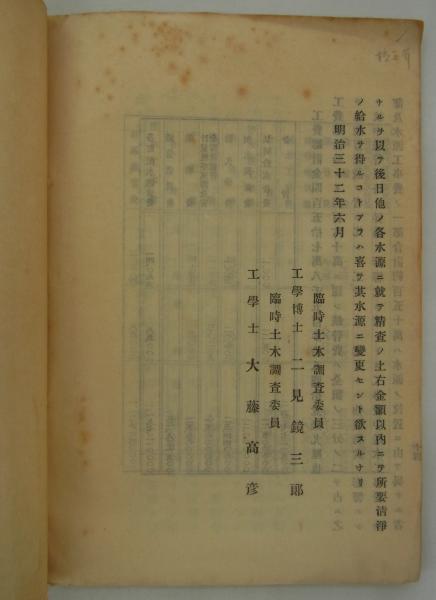 ケルヲ以テ後日他ノ各水源ニ就テ精査ノ上右金額以内ニテ所要淸淨
ノ給水ヲ得ルコトアラハ喜テ其水源ニ變更セント欲スルナリ
明治三十二年六月
臨時土木調査委員
工學博士 二見鏡三郞
臨時土木調査委員
工學士 大藤高彦